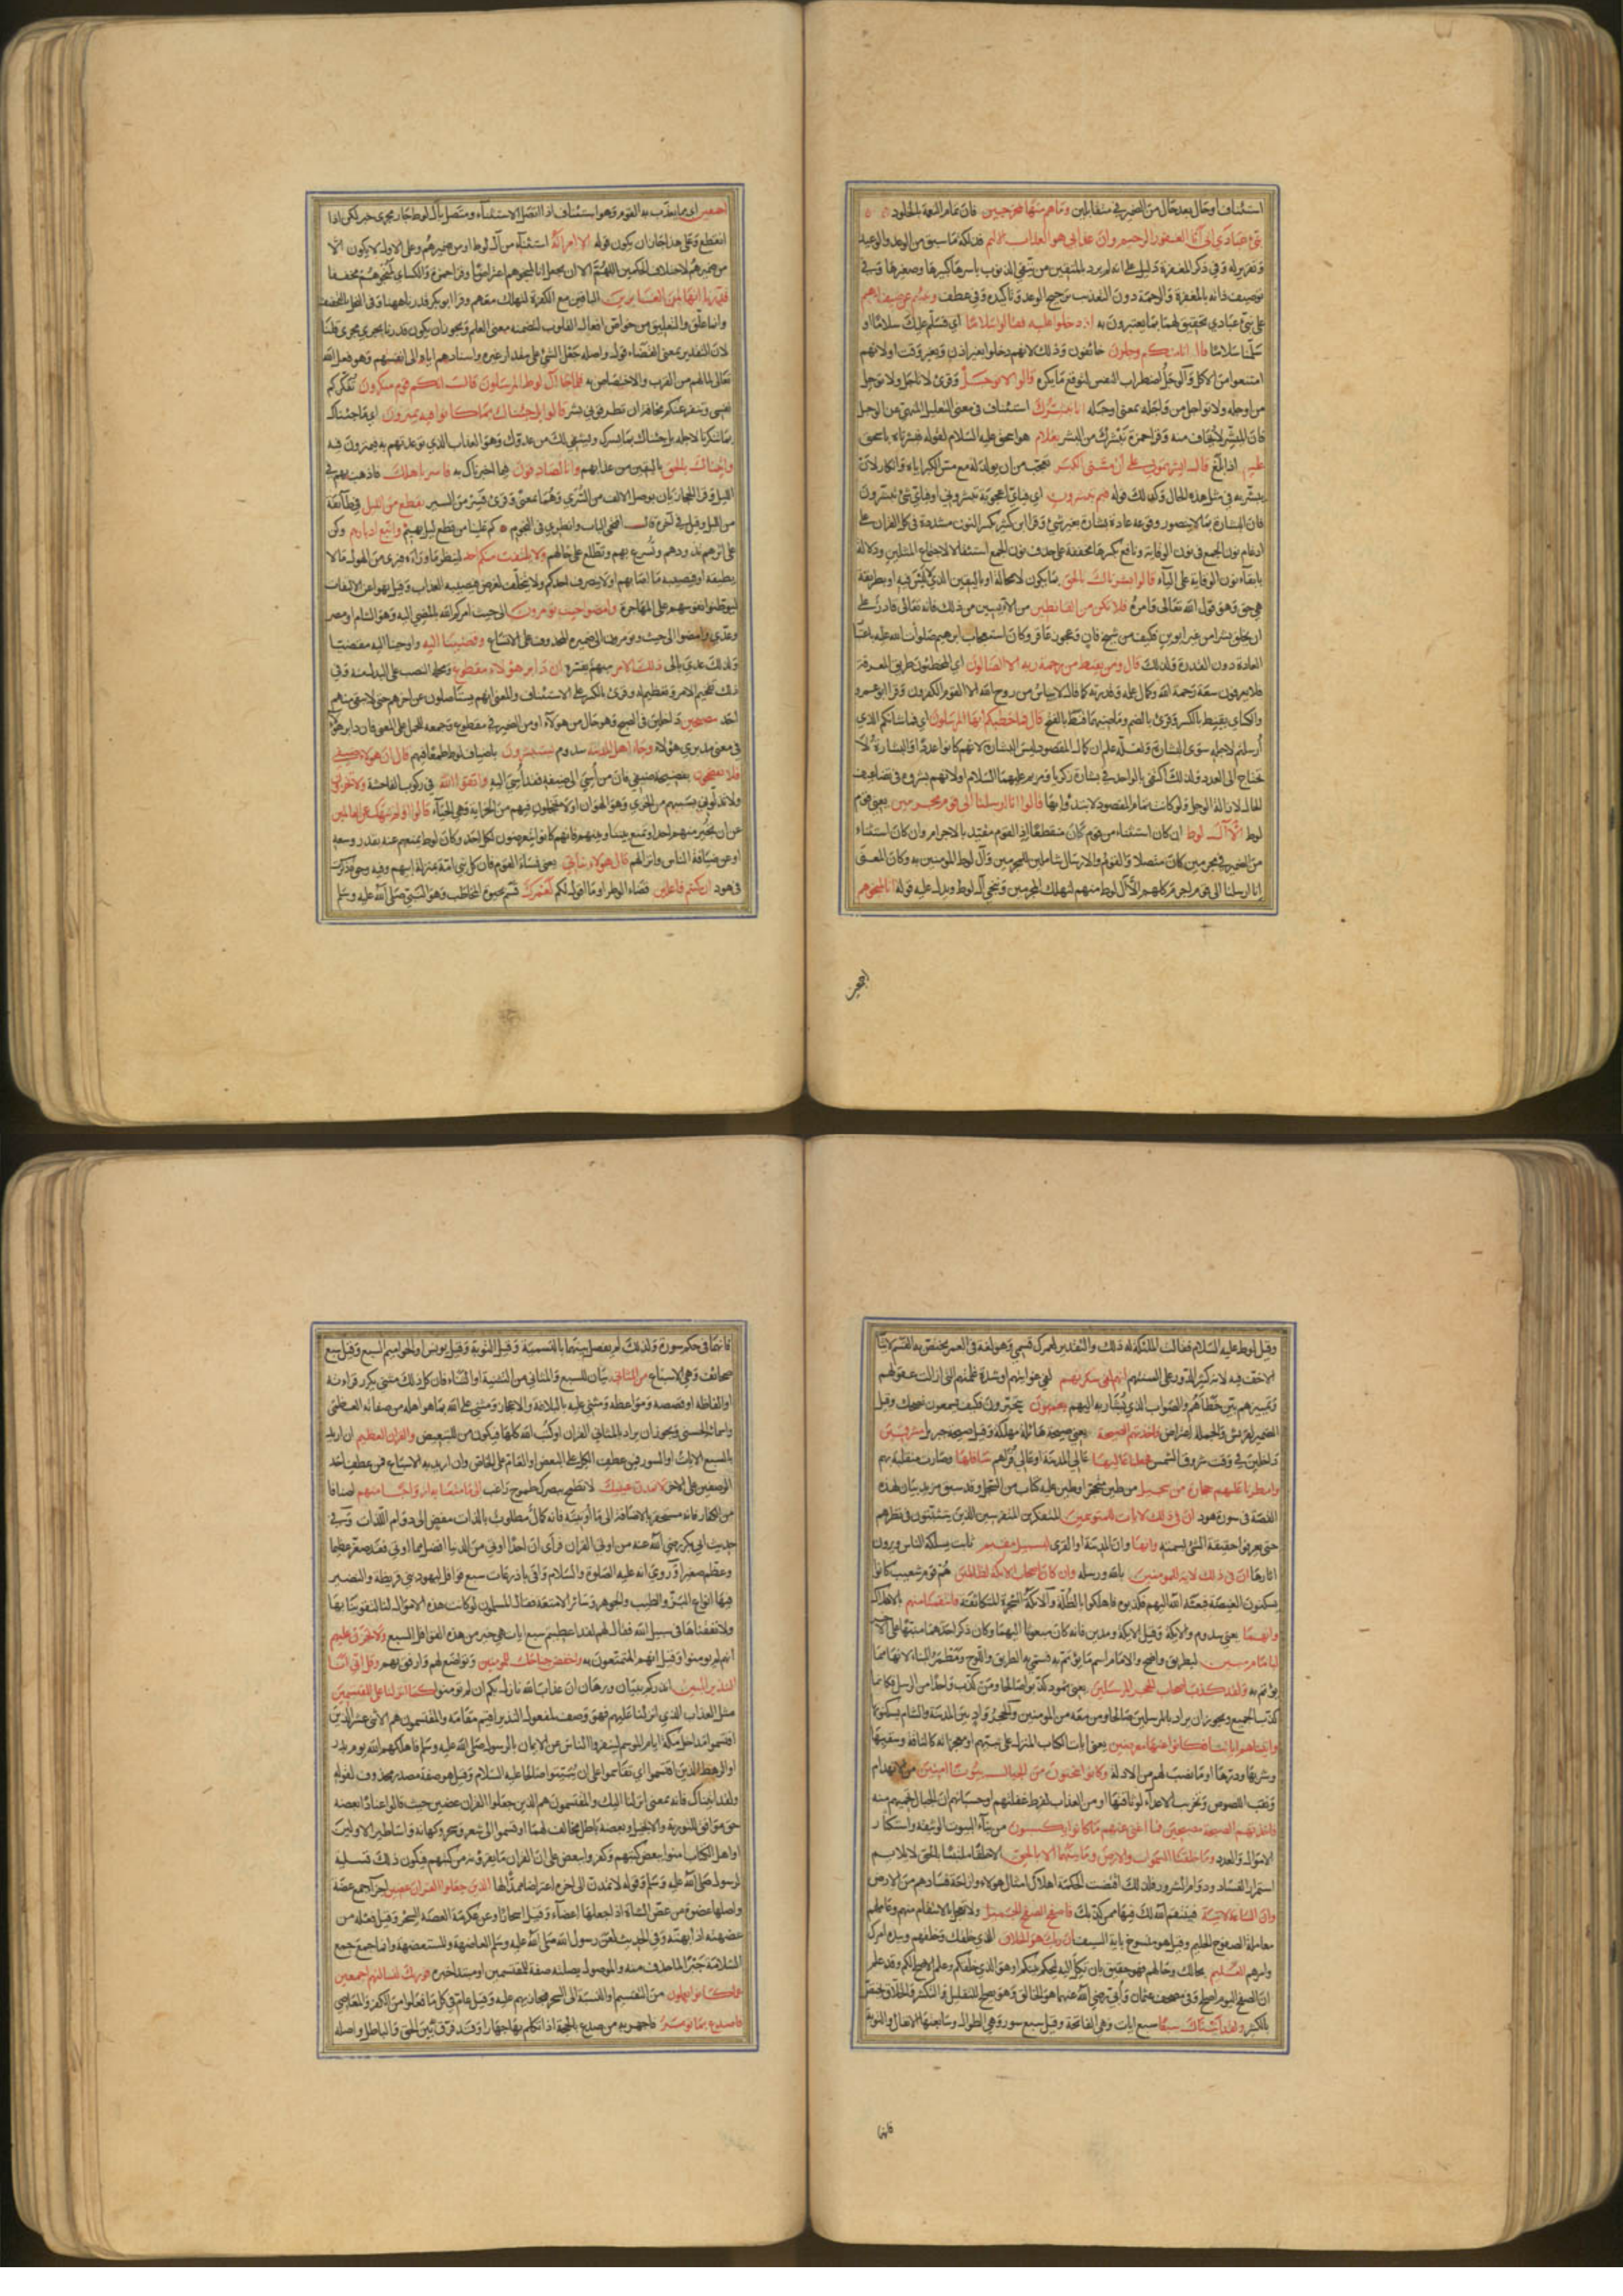 استئناف او حال بعد حال من الضمير في متقابلين وما هم منها بمخرجين فان تمام النعمة بالخلود
نبئ عبادي اني انا الغفور الرحيم وان عذابي هو العذاب الاليم فذلكة ما سبق من الوعد والوعيد
وتقرير له وفي ذكر المغفرة دليل على انه لم يرد بالمتقين من يتقي الذنوب باسرها كبيرها وصغيرها وفي
توصيف ذاته بالمغفرة والرحمة دون التعذيب ترجيح الوعد وتأكيده وفي عطف ونبئهم عن ضيف ابرهيم
على نبئ عبادي تحقيق لهما بما يعتبرون به اذ دخلوا عليه فقالوا سلاما اي نسلم عليك سلاما او
سلمنا سلاما قال انا منكم وجلون خائفون وذلك لانهم دخلوا بغير اذن وبغير وقت او لانهم
امتنعوا من الاكل والوجل اضطراب النفس لتوقع ما يكره قالوا لا توجل وقرئ لا تاجل ولا توجل
من اوجله ولا تواجل من واجله بمعنى اوجله انا نبشرك استئناف في معنى التعليل للنهي عن الوجل
فان المبشر لا يخاف منه وقرا حمزة نبشرك من البشر بغلام هو اسحق عليه السلام لقوله فبشرناه باسحق
عليم اذا بلغ قال ابشرتموني على ان مسني الكبر تعجب من ان يولد له مع مس الكبر اياه او انكار لان
يبشر به في مثل هذه الحال وكذلك قوله فبم تبشرون اي فباي اعجوبة تبشروني او فباي شئ تبشرون
فان البشارة بما لا يتصور وقوعه عادة بشارة بغير شئ وقرا ابن كثير بكسر النون مشددة في كل القران على
ادغام نون الجمع في نون الوقاية ونافع بكسرها مخففة على حذف نون الجمع استثقالا لاجتماع المثلين ودلالة
بابقاء نون الوقاية على الياء قالوا بشرناك بالحق بما يكون لا محالة او باليقين الذي لا لبس فيه او بطريقة
هي حق وهو قول الله تعالى وامره فلا تكن من القانطين من الايسين من ذلك فانه تعالى قادر على
ان يخلق بشرا من غير ابوين فكيف من شيخ فان وعجوز عاقر وكان استعجاب ابرهيم صلوات الله عليه باعتبار
العادة دون القدرة ولذلك قال ومن يقنط من رحمة ربه الا الضالون اي المخطئون طريق المعرفة
فلا يعرفون سعة رحمة الله وكمال علمه وقدرته كما قال لا ييأس من روح الله الا القوم الكفرون وقرا ابو عمرو
والكسائي يقنط بالكسر وقرئ بالضم وماضيهما قنط بالفتح قال فما خطبكم ايها المرسلون اي فما شانكم الذي
أرسلتم لاجله سوى البشارة ولعله علم ان كمال المقصود ليس البشارة لانهم كانوا عددا والبشارة لا
تحتاج الى العدد ولذلك اكتفى بالواحد في بشارة زكريا ومريم عليهما السلام او لانهم بشروه في تضاعيف
الحال لازالة الوجل ولو كانت تمام المقصود لابتدأوا بها قالوا انا ارسلنا الى قوم مجرمين يعني قوم
لوط الا آل لوط ان كان استثناء من قوم كان منقطعا اذ القوم مقيد بالاجرام وان كان استثناء
من الضمير في مجرمين كان متصلا والقوم والارسال شاملين للمجرمين وآل لوط المؤمنين به وكان المعنى
انا ارسلنا الى قوم اجرم كلهم الا آل لوط منهم لنهلك المجرمين وننجي آل لوط ويدل عليه قوله انا لمنجوهم
اجمعين
اجمعين اي مما يعذب به القوم وهو استئناف اذا اتصل الاستثناء ومتصل بآل لوط جار مجرى خبر لكن اذا
انقطع وعلى هذا جاز ان يكون قوله الا امرأته استثناء من آل لوط او من ضميرهم وعلى الاول لا يكون الا
من ضميرهم لاختلاف الحكمين اللهم الا ان يجعل انا لمنجوهم اعتراضا وقرا حمزة والكسائي لمنجوهم مخففا
قدرنا انها لمن الغابرين الباقين مع الكفرة لتهلك معهم وقرا ابو بكر قدرنا ههنا وفي النمل بالتخفيف
وانما علق والتعليق من خواص افعال القلوب لتضمنه معنى العلم ويجوز ان يكون قدرنا مجرى مجرى قلنا
لان التقدير بمعنى القضاء قول واصله جعل الشئ على مقدار غيره واسنادهم اياه الى انفسهم وهو فعل الله
تعالى لما لهم من القرب والاختصاص به فلما جاء آل لوط المرسلون قال انكم قوم منكرون تنكركم
نفسي وتنفر عنكم مخافة ان تطرقوني بشر قالوا بل جئناك بما كانوا فيه يمترون اي ما جئناك
بما تنكرنا لاجله بل جئناك بما يسرك ويشفي لك من عدوك وهو العذاب الذي توعدتهم به فيمترون فيه
واتيناك بالحق باليقين من عذابهم وانا لصادقون فيما اخبرناك به فاسر باهلك فاذهب بهم في
الليل وقرا الحجازيان بوصل الالف من السرى وهما بمعنى وقرئ فسر من السير بقطع من الليل في طائفة
من الليل وقيل في آخره قال افتحي الباب وانظري في النجوم كم علينا من قطع ليل بهيم واتبع ادبارهم وكن
على اثرهم تذودهم وتسرع بهم وتطلع على حالهم ولا يلتفت منكم احد لينظر ما وراءه فيرى من الهول ما لا
يطيقه او فيصيبه ما اصابهم او لا ينصرف احدكم ولا يتخلف لغرض فيصيبه العذاب وقيل نهوا عن الالتفات
ليوطنوا نفوسهم على المهاجرة وامضوا حيث تؤمرون الى حيث امركم الله بالمضي اليه وهو الشام او مصر
وعدي وامضوا الى حيث وتؤمرون الى ضميره المحذوف على الاتساع وقضينا اليه واوحينا اليه مقضيا
ولذلك عدي بالى ذلك الامر مبهم يفسره ان دابر هؤلاء مقطوع ومحله النصب على البدل منه وفي
ذلك تفخيم للامر وتعظيم له وقرئ بالكسر على الاستئناف والمعنى انهم يستأصلون عن اخرهم حتى لا يبقى منهم
احد مصبحين داخلين في الصبح وهو حال من هؤلاء او من الضمير في مقطوع وجمعه للحمل على المعنى فان دابر هؤلاء
في معنى مدبري هؤلاء وجاء اهل المدينة سدوم يستبشرون باضياف لوط طمعا فيهم قال ان هؤلاء ضيفي
فلا تفضحون بفضيحة ضيفي فان من أسيئ الى ضيفه فقد أسيئ اليه واتقوا الله في ركوب الفاحشة ولا تخزون
ولا تذلوني بسببهم من الخزي وهو الهوان او لا تخجلوني فيهم من الخزاية وهي الحياء قالوا اولم ننهك عن العالمين
عن ان تجير منهم احدا او تمنع بيننا وبينهم فانهم كانوا يتعرضون لكل احد وكان لوط يمنعهم عنه بقدر وسعه
او عن ضيافة الناس وانزالهم قال هؤلاء بناتي يعني نساء القوم فان كل نبي امة بمنزلة ابيهم وفيه وجوه ذكرت
في هود ان كنتم فاعلين قضاء الوطر او ما اقول لكم لعمرك قسم بحيوة المخاطب وهو النبي صلى الله عليه وسلم
وقيل لوط عليه السلام قالت الملئكة له ذلك والتقدير لعمرك قسمي وهو لغة في العمر يختص به القسم لايثار
الاخف فيه لانه كثير الدور على السنتهم انهم لفي سكرتهم لفي غوايتهم او شدة غلمتهم التي ازالت عقولهم
وتمييزهم بين خطائهم والصواب الذي يشار به اليهم يعمهون يتحيرون فكيف يسمعون نصحك وقيل
الضمير لقريش والجملة اعتراض فاخذتهم الصيحة يعني صيحة هائلة مهلكة وقيل صيحة جبريل مشرقين
داخلين في وقت شروق الشمس فجعلنا عاليها عالي المدينة او عالي قراهم سافلها وصارت منقلبة بهم
وامطرنا عليهم حجارة من سجيل من طين متحجر او طين عليه كتاب من السجل وقد سبق مزيد بيان لهذه
القصة في سورة هود ان في ذلك لايات للمتوسمين للمتفكرين المتفرسين الذين يتثبتون في نظرهم
حتى يعرفوا حقيقة الشئ بسمته وانها وان المدينة او القرى لبسبيل مقيم ثابت يسلكه الناس ويرون
اثارها ان في ذلك لاية للمؤمنين بالله ورسله وان كان اصحاب الايكة لظالمين هم قوم شعيب كانوا
يسكنون الغيضة فبعثه الله اليهم فكذبوه فاهلكوا بالظلة والايكة الشجرة المتكاثفة فانتقمنا منهم بالاهلاك
وانهما يعني سدوم والايكة وقيل الايكة ومدين فانه كان مبعوثا اليهما وكان ذكر احدهما منبها على الاخر
لبامام مبين لبطريق واضح والامام اسم ما يؤتم به فسمي به الطريق واللوح ومطمر البناء لانها مما
يؤتم به ولقد كذب اصحاب الحجر المرسلين يعني ثمود كذبوا صالحا ومن كذب واحدا من الرسل فكانما
كذب الجميع ويجوز ان يراد بالمرسلين صالحا ومن معه من المؤمنين والحجر واد بين المدينة والشام يسكنونها
واتيناهم اياتنا فكانوا عنها معرضين يعني ايات الكتاب المنزل على نبيهم او معجزاته كالناقة وسقيها
وشربها ودرها او ما نصب لهم من الادلة وكانوا ينحتون من الجبال بيوتا امنين من الانهدام
ونقب اللصوص وتخريب الاعداء لوثاقتها او من العذاب لفرط غفلتهم او حسبانهم ان الجبال تحميهم منه
فاخذتهم الصيحة مصبحين فما اغنى عنهم ما كانوا يكسبون من بناء البيوت الوثيقة واستكثار
الاموال والعدد وما خلقنا السموات والارض وما بينهما الا بالحق الا خلقا ملتبسا بالحق لا يلايم
استمرار الفساد ودوام الشرور فلذلك اقتضت الحكمة اهلاك امثال هؤلاء وازاحة فسادهم من الارض
وان الساعة لاتية فينتقم الله لك فيها ممن كذبك فاصفح الصفح الجميل ولا تعجل بالانتقام منهم وعاملهم
معاملة الصفوح الحليم وقيل هو منسوخ باية السيف ان ربك هو الخلاق الذي خلقك وخلقهم وبيده امرك
وامرهم العليم بحالك وحالهم فهو حقيق بان تكل اليه ليحكم بينكم او هو الذي خلقكم وعلم الاصلح لكم وقد علم
ان الصفح اليوم اصلح وفي مصحف عثمان وأبي رضي الله عنهما هو الخالق وهو يصلح للتقليل والتكثير والخلاق يختص
بالكثير ولقد آتيناك سبعا سبع ايات وهي الفاتحة وقيل سبع سور وهي الطوال وسابعتها الانفال والتوبة
فانهما
فانهما في حكم سورة ولذلك لم يفصل بينهما بالتسمية وقيل التوبة وقيل يونس او الحواميم السبع وقيل سبع
صحائف وهي الاسباع من المثاني بيان للسبع والمثاني من التثنية او الثناء فان كل ذلك مثنى يكرر قراءته
او الفاظه او قصصه ومواعظه ومثني عليه بالبلاغة والاعجاز ومثن على الله بما هو اهله من صفاته العظمى
واسمائه الحسنى ويجوز ان يراد بالمثاني القران او كتب الله كلها فيكون من للتبعيض والقران العظيم ان اريد
بالسبع الايات او السور فمن عطف الكل على البعض او العام على الخاص وان اريد به الاسباع فمن عطف احد
الوصفين على الاخر لا تمدن عينيك لا تطمح ببصرك طموح راغب الى ما متعنا به ازواجا منهم اصنافا
من الكفار فانه مستحقر بالاضافة الى ما أوتيته فانه كمال مطلوب بالذات مفض الى دوام اللذات وفي
حديث ابي بكر رضي الله عنه من اوتي القران فرأى ان احدا اوتي من الدنيا افضل مما اوتي فقد صغر عظيما
وعظم صغيرا وروي انه عليه الصلوة والسلام وافى باذرعات سبع قوافل ليهود بني قريظة والنضير
فيها انواع البز والطيب والجوهر وسائر الامتعة فقال المسلمون لو كانت هذه الاموال لنا لتقوينا بها
ولانفقناها في سبيل الله فقال لهم لقد اعطيتم سبع ايات هي خير من هذه القوافل السبع ولا تحزن عليهم
انهم لم يؤمنوا وقيل انهم المتمتعون به واخفض جناحك للمؤمنين وتواضع لهم وارفق بهم وقل اني انا
النذير المبين انذركم ببيان وبرهان ان عذاب الله نازل بكم ان لم تؤمنوا كما انزلنا على المقتسمين
مثل العذاب الذي انزلنا عليهم فهو وصف لمفعول النذير اقيم مقامه والمقتسمون هم الاثنى عشر الذين
اقتسموا مداخل مكة ايام الموسم لينفروا الناس عن الايمان بالرسول صلى الله عليه وسلم فاهلكهم الله يوم بدر
او الرهط الذين اقتسموا اي تقاسموا على ان يبيتوا صالحا عليه السلام وقيل هو صفة مصدر محذوف لقوله
ولقد اتيناك فانه بمعنى انزلنا اليك والمقتسمون هم الذين جعلوا القران عضين حيث قالوا عنادا بعضه
حق موافق للتورية والانجيل وبعضه باطل مخالف لهما او قسموا الى شعر وسحر وكهانة واساطير الاولين
او اهل الكتاب امنوا ببعض كتبهم وكفروا ببعض على ان القران ما يقرؤنه من كتبهم فيكون ذلك تسلية
لرسول صلى الله عليه وسلم وقوله لا تمدن الى اخره اعتراضا ممدا لها الذين جعلوا القران عضين اجزاء جمع عضة
واصلها عضوة من عضى الشاة اذا جعلها اعضاء وقيل اسحارا وعن عكرمة العضه السحر وقيل فعلة من
عضهته اذا بهته وفي الحديث لعن رسول الله صلى الله عليه وسلم العاضهة والمستعضهة وانما جمع جمع
السلامة جبرا لما حذف منه والموصول بصلته صفة للمقتسمين او مبتدا خبره فوربك لنسألنهم اجمعين
عما كانوا يعملون من التقسيم والنسبة الى السحر فيجازيهم عليه وقيل عام في كل ما فعلوا من الكفر والمعاصي
فاصدع بما تؤمر فاجهر به من صدع بالحجة اذا تكلم بها جهارا او فرق بين الحق والباطل واصله